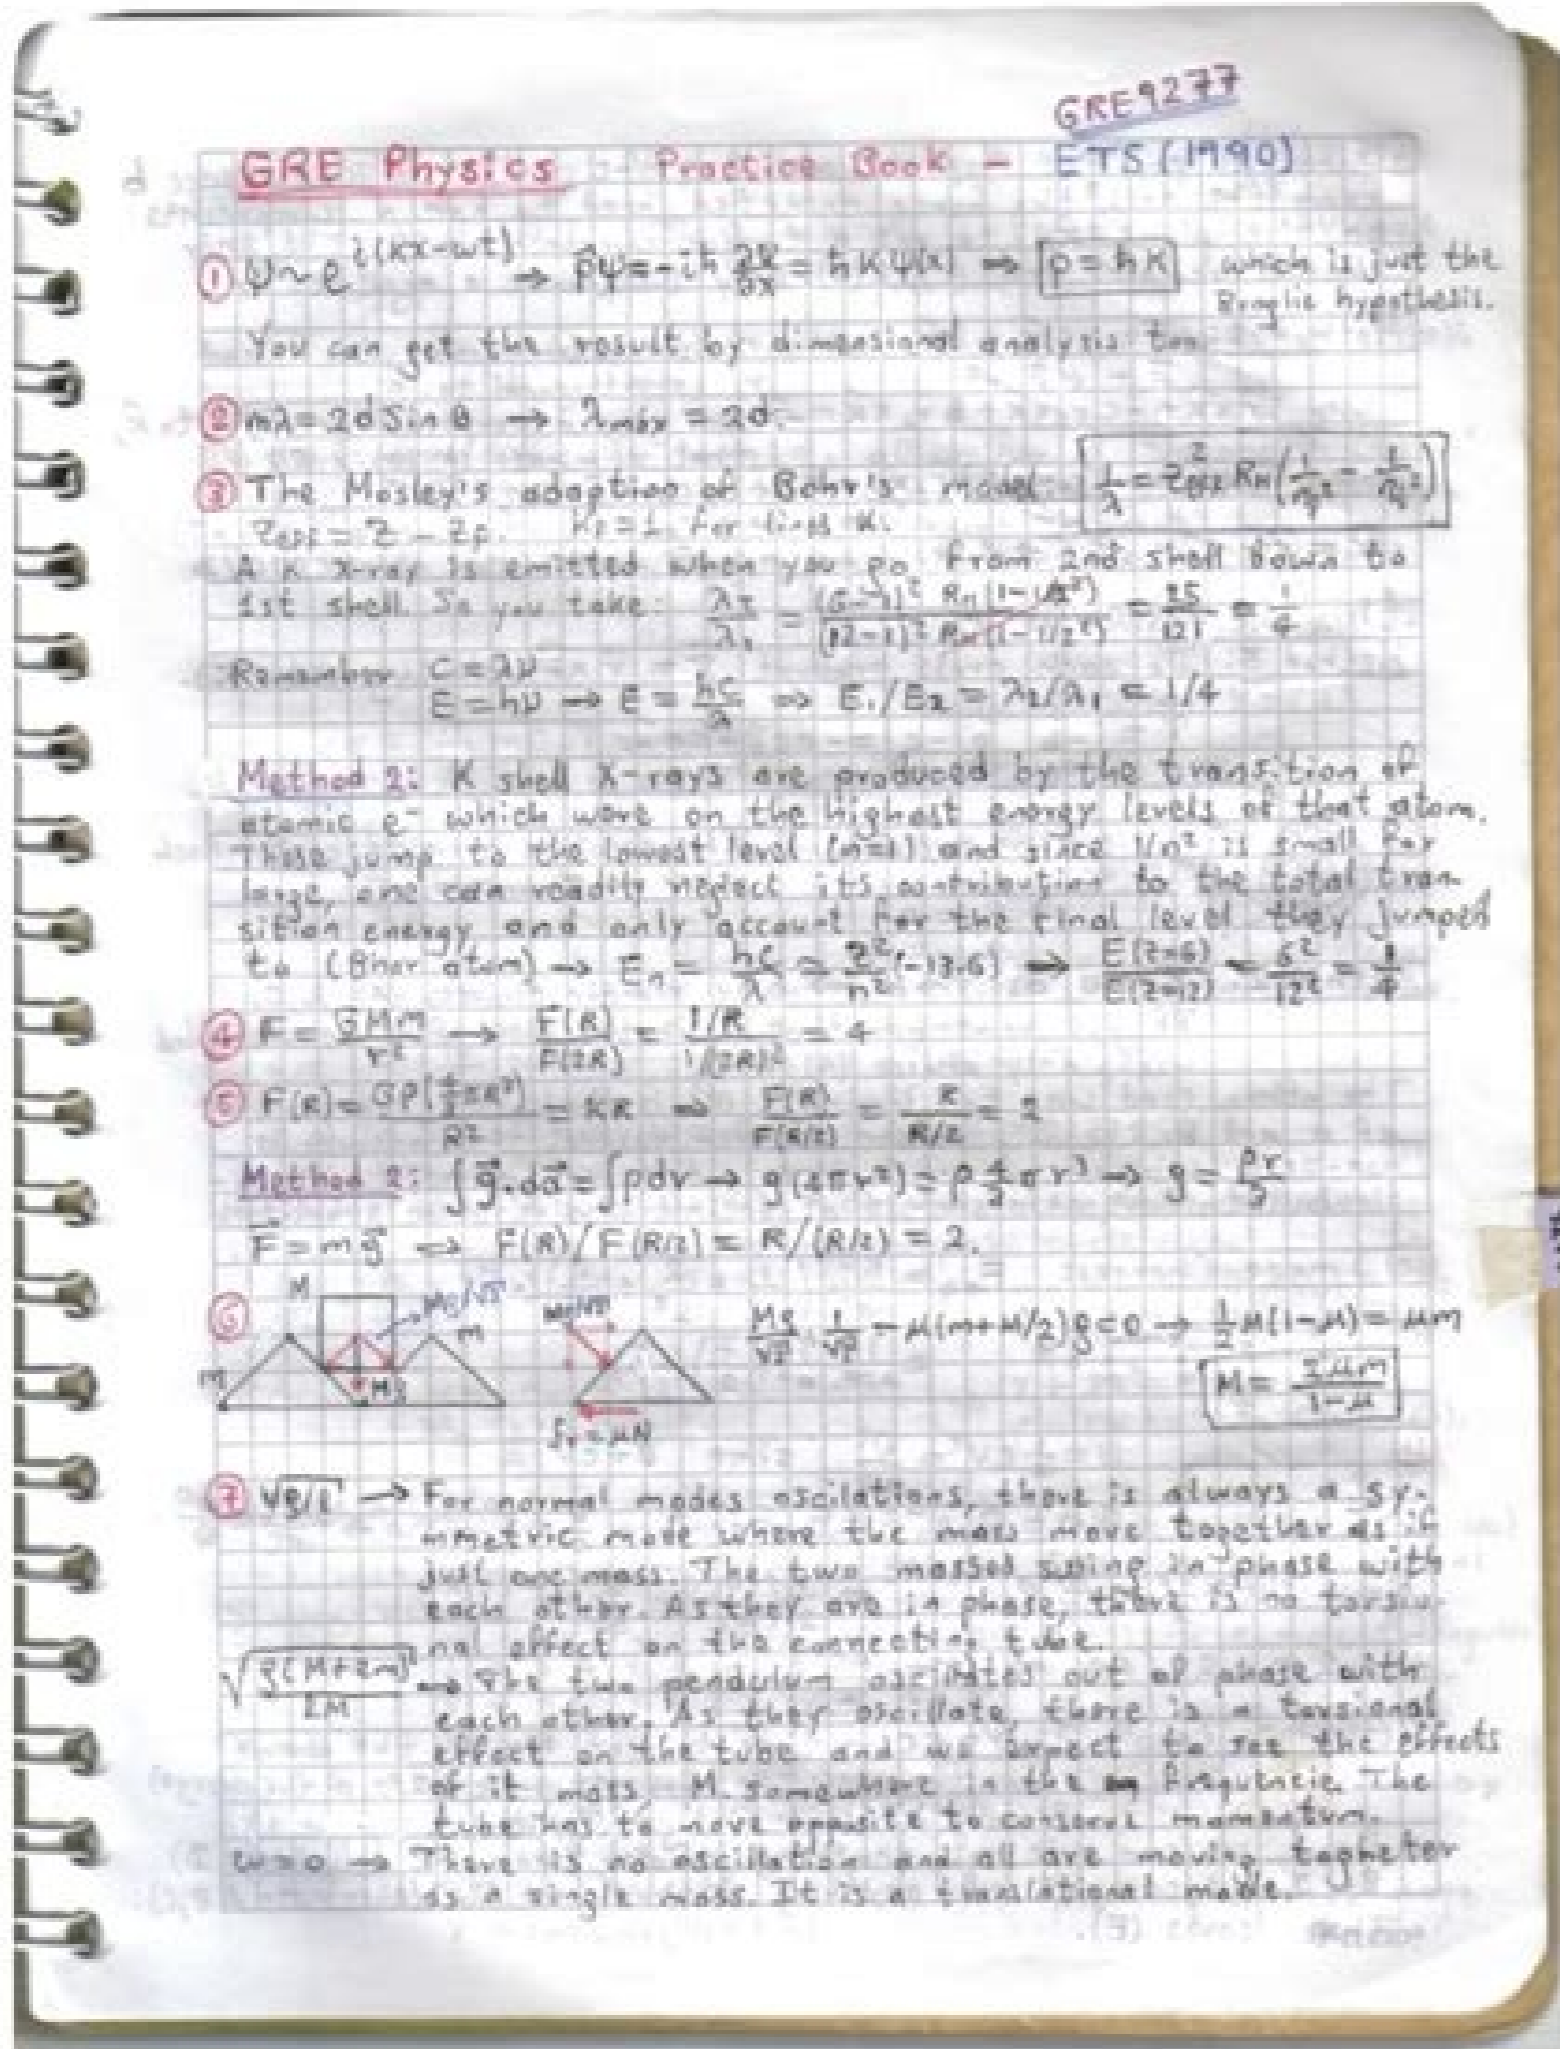 GRE9277
GRE Physics Practice Book - ETS (1990)
① ψ~e^i(kx-wt) → p̂ψ=-iħ ∂ψ/∂x = ħKψ(x) ⇒ p = ħK which is just the
hypothesis.
You can get the result by dimensional analysis too.
② mλ=2d Sin θ → λmáx = 2d.
③ The Mosley's adaption of Bohr's model: 1/λ = Z²eff RH(1/nf² - 1/ni²)
Zeff = Z - Zf. for lines K.
A K X-ray is emitted when you go from 2nd shell down to
1st shell. So you take: = 25/121 = 1/4
Remember c=λν
E=hν → E = hc/λ ⇒ E₁/E₂ = λ₂/λ₁ = 1/4
Method 2: K shell X-rays are produced by the transition of
atomic e⁻ which were on the highest energy levels of that atom.
These jump to the lowest level (n=1) and since 1/n² is small for
large, one can readily neglect its contribution to the total tran
sition energy and only account for the final level they jumped
to (Bhor atom) → En = hc/λ = Z²/n² (-13.6) → E(Z=6)/E(Z=12) = 6²/12² = 1/4
④ F = GMm/r² → F(R)/F(2R) = 1/R/1/(2R)² = 4
⑤ F(R) = Gρ(4/3πR³)/R² = KR ⇒ F(R)/F(R/2) = R/R/2 = 2
Method 2: ∫g⃗·da⃗ = ∫ρdv → g(4πr²) = ρ 4/3 π r³ → g = ρr/3
F⃗ = mg⃗ ⇒ F(R)/F(R/2) = R/(R/2) = 2.
⑥ M Mg/√2 m Mg/√2 Mg/√2 · 1/√2 - μ(m+M/2)g=0 → 1/2 M(1-μ) = μm
m Mg M = 2μm/1-μ
fr = μN
⑦ √g/l → For normal modes oscilations, there is always a sy-
mmetric mode where the mass move together as if
just one mass. The two masses swing in phase with
each other. As they are in phase, there is no torsio-
nal effect on the connecting tube.
√g(M+2m)/2M → The two pendulum oscilates out of phase with
each other. As they oscillate, there is a torsional
effect on the tube and we expect to see the effects
of it mass, M. somewhere in the The
tube has to move opposite to conserve momentum.
w=0 → There is no oscillation and all are moving togheter
as a single mass. It is a translational mode.